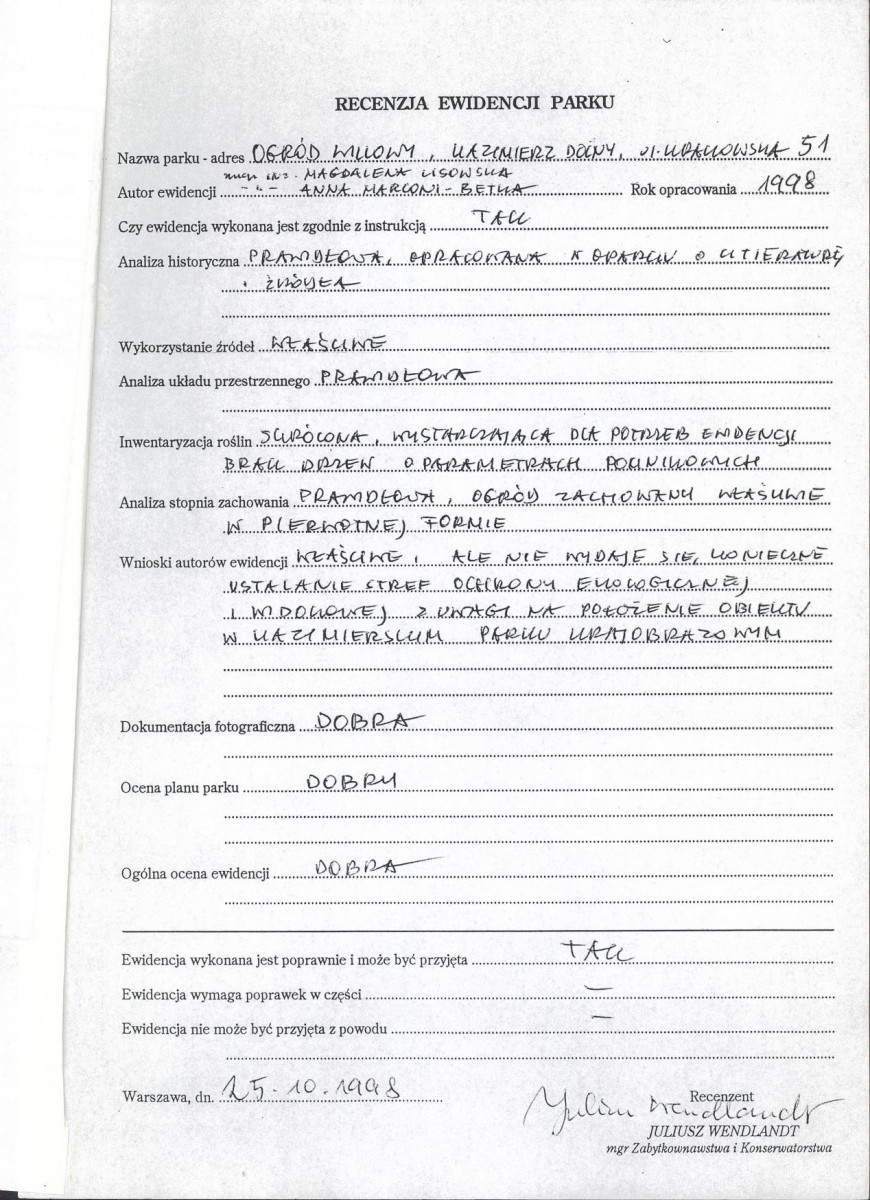 RECENZJA EWIDENCJI PARKU
Nazwa parku - adres OGRÓD WILLOWY, KAZIMIERZ DOLNY, ul. KRAKOWSKA 51
mgr inż. MAGDALENA LISOWSKA
Autor ewidencji -"- ANNA MARCONI-BETKA Rok opracowania 1998
Czy ewidencja wykonana jest zgodnie z instrukcją TAK
Analiza historyczna PRAWIDŁOWA, OPRACOWANA W OPARCIU O LITERATURĘ
i ŹRÓDŁA
Wykorzystanie źródeł WŁAŚCIWE
Analiza układu przestrzennego PRAWIDŁOWA
Inwentaryzacja roślin SKRÓCONA, WYSTARCZAJĄCA DLA POTRZEB EWIDENCJI
BRAK DRZEW O PARAMETRACH POMNIKOWYCH
Analiza stopnia zachowania PRAWIDŁOWA, OGRÓD ZACHOWANY WŁAŚCIWIE
W PIERWOTNEJ FORMIE
Wnioski autorów ewidencji WŁAŚCIWE, ALE NIE WYDAJE SIĘ KONIECZNE
USTALANIE STREF OCHRONY EKOLOGICZNEJ
I WIDOKOWEJ Z UWAGI NA POŁOŻENIE OBIEKTU
W KAZIMIERSKIM PARKU KRAJOBRAZOWYM
Dokumentacja fotograficzna DOBRA
Ocena planu parku DOBRY
Ogólna ocena ewidencji DOBRA
Ewidencja wykonana jest poprawnie i może być przyjęta TAK
Ewidencja wymaga poprawek w części —
Ewidencja nie może być przyjęta z powodu —
Warszawa, dn. 25.10.1998
Recenzent
Juliusz Wendlandt
JULIUSZ WENDLANDT
mgr Zabytkownawstwa i Konserwatorstwa